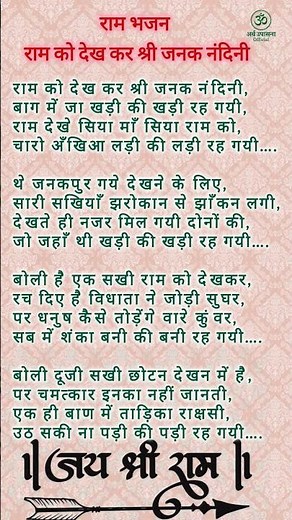 ॐ
अर्थ उपासना
Official
राम भजन
राम को देख कर श्री जनक नंदिनी
राम को देख कर श्री जनक नंदिनी,
बाग में जा खड़ी की खड़ी रह गयी,
राम देखे सिया माँ सिया राम को,
चारो अँखिआ लड़ी की लड़ी रह गयी….
थे जनकपुर गये देखने के लिए,
सारी सखियाँ झरोकान से झाँकन लगी,
देखते ही नजर मिल गयी दोनों की,
जो जहाँ थी खड़ी की खड़ी रह गयी….
बोली है एक सखी राम को देखकर,
रच दिए है विधाता ने जोड़ी सुघर,
पर धनुष कैसे तोड़ेंगे वारे कुंवर,
सब में शंका बनी की बनी रह गयी….
बोली दूजी सखी छोटन देखन में है,
पर चमत्कार इनका नहीं जानती,
एक ही बाण में ताड़िका राक्षसी,
उठ सकी ना पड़ी की पड़ी रह गयी….
॥ जय श्री राम ॥